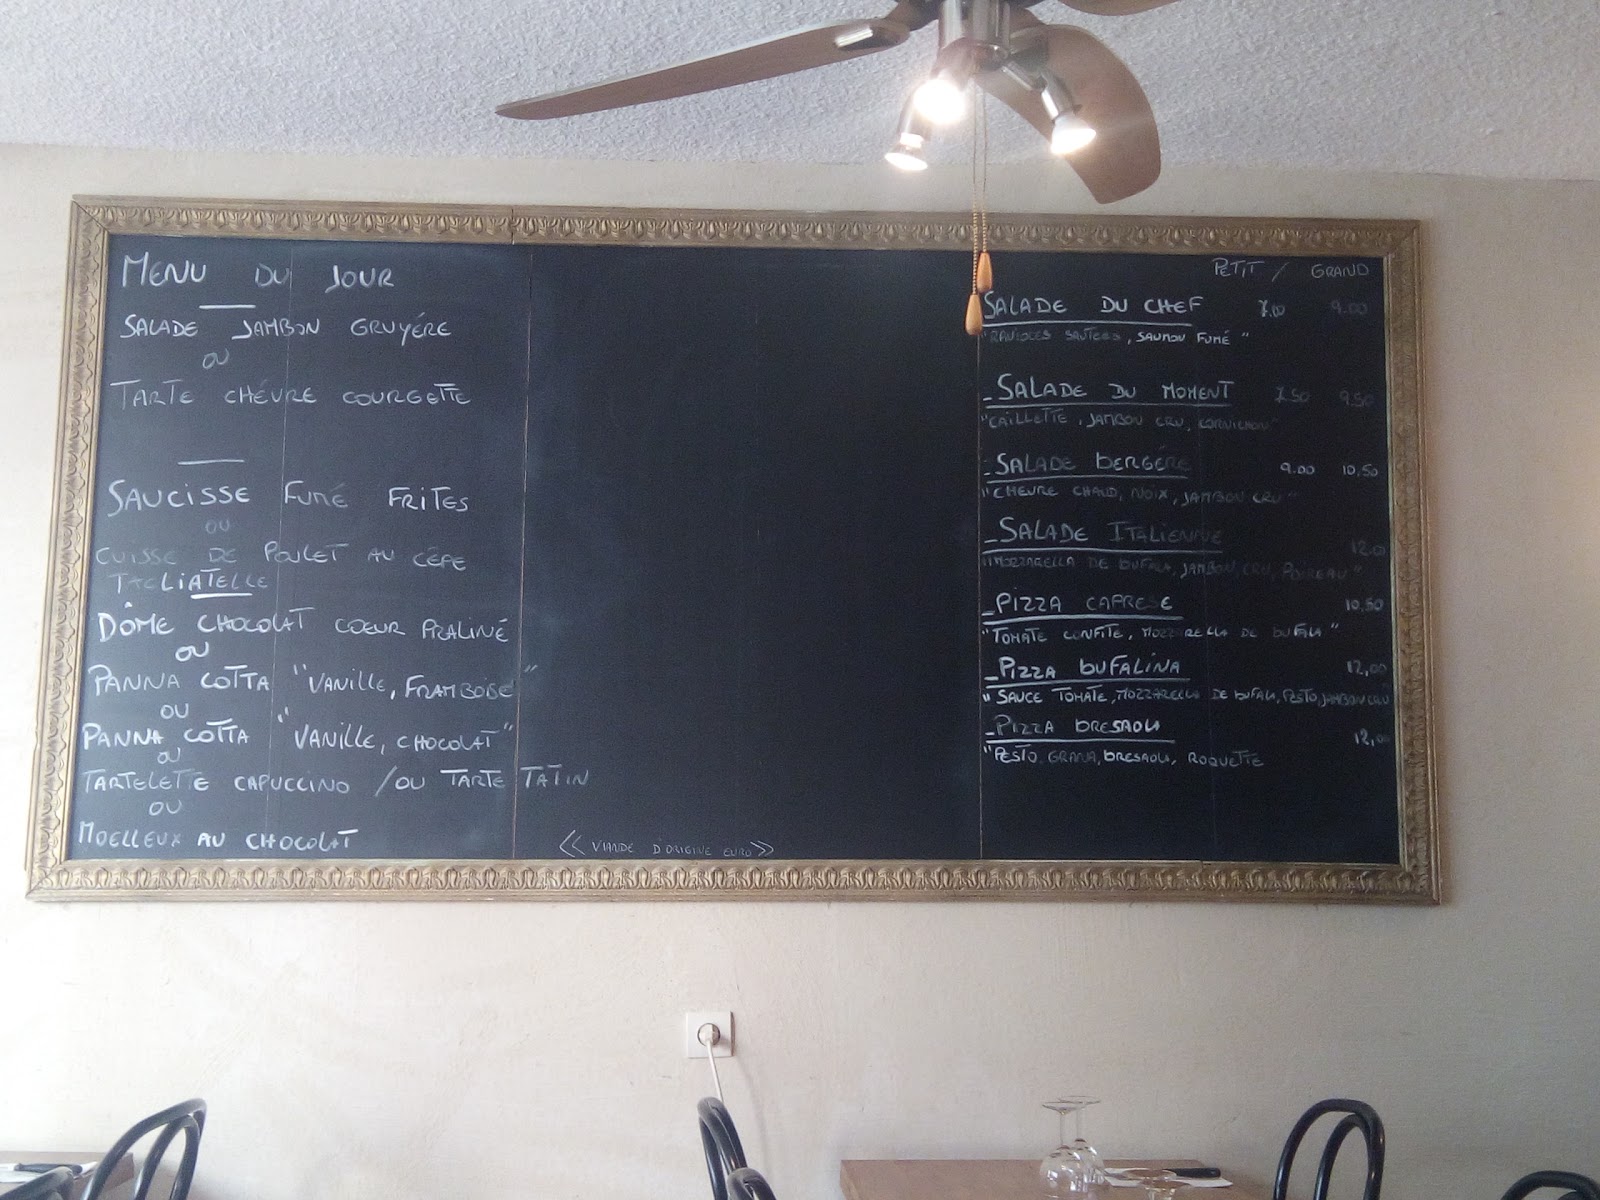 MENU DU JOUR
SALADE JAMBON GRUYÉRE
OU
TARTE CHÉVRE COURGETTE
SAUCISSE FUMÉ FRITES
OU
CUISSE DE POULET AU CÉPE
TAGLIATELLE
DÔME CHOCOLAT COEUR PRALINÉ
OU
PANNA COTTA "VANILLE, FRAMBOISE"
OU
PANNA COTTA "VANILLE, CHOCOLAT"
OU
TARTELETTE CAPUCCINO / OU TARTE TATIN
OU
MOELLEUX AU CHOCOLAT
<< VIANDE D'ORIGINE EURO >>
PETIT / GRAND
SALADE DU CHEF 7.00 9.00
"RAVIOLES SAUTEES, SAUMON FUMÉ"
- SALADE DU MOMENT 7.50 9.50
"CAILLETTE, JAMBON CRU, CORNICHON"
- SALADE BERGÉRE 9.00 10.50
"CHEVRE CHAUD, NOIX, JAMBON CRU"
- SALADE ITALIENNE 12.00
"MOZZARELLA DE BUFALA, JAMBON, CRU, POIREAU"
- PIZZA CAPRESE 10.50
"TOMATE CONFITE, MOZZARELLA DE BUFALA"
- PIZZA BUFALINA 12,00
"SAUCE TOMATE, MOZZARELLA DE BUFALA, PESTO, JAMBON CRU
- PIZZA BRESAOLA 12,00
"PESTO, GRANA, BRESAOLA, ROQUETTE